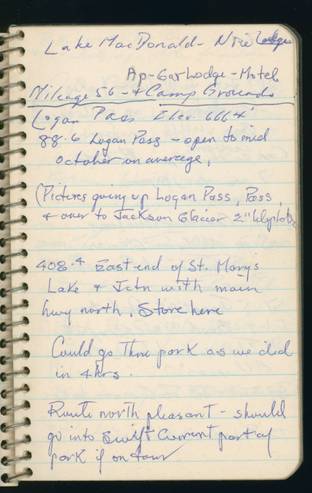 Lake MacDonald - Nice Lodges
Ap-Gar Lodge - Motel
Mileage 56 - + Camp Grounds
Logan Pass Elev 6664'
88.6 Logan Pass - open to mid
October on average.
(Pictures going up Logan Pass, Pass
+ over to Jackson Glacier 2"
408.4 East end of St. Marys
Lake + Jctn with main
hwy north. Store here
Could go thru park as we did
in 4 hrs.
Route north pleasant - should
go into Swift Current part of
park if on tour